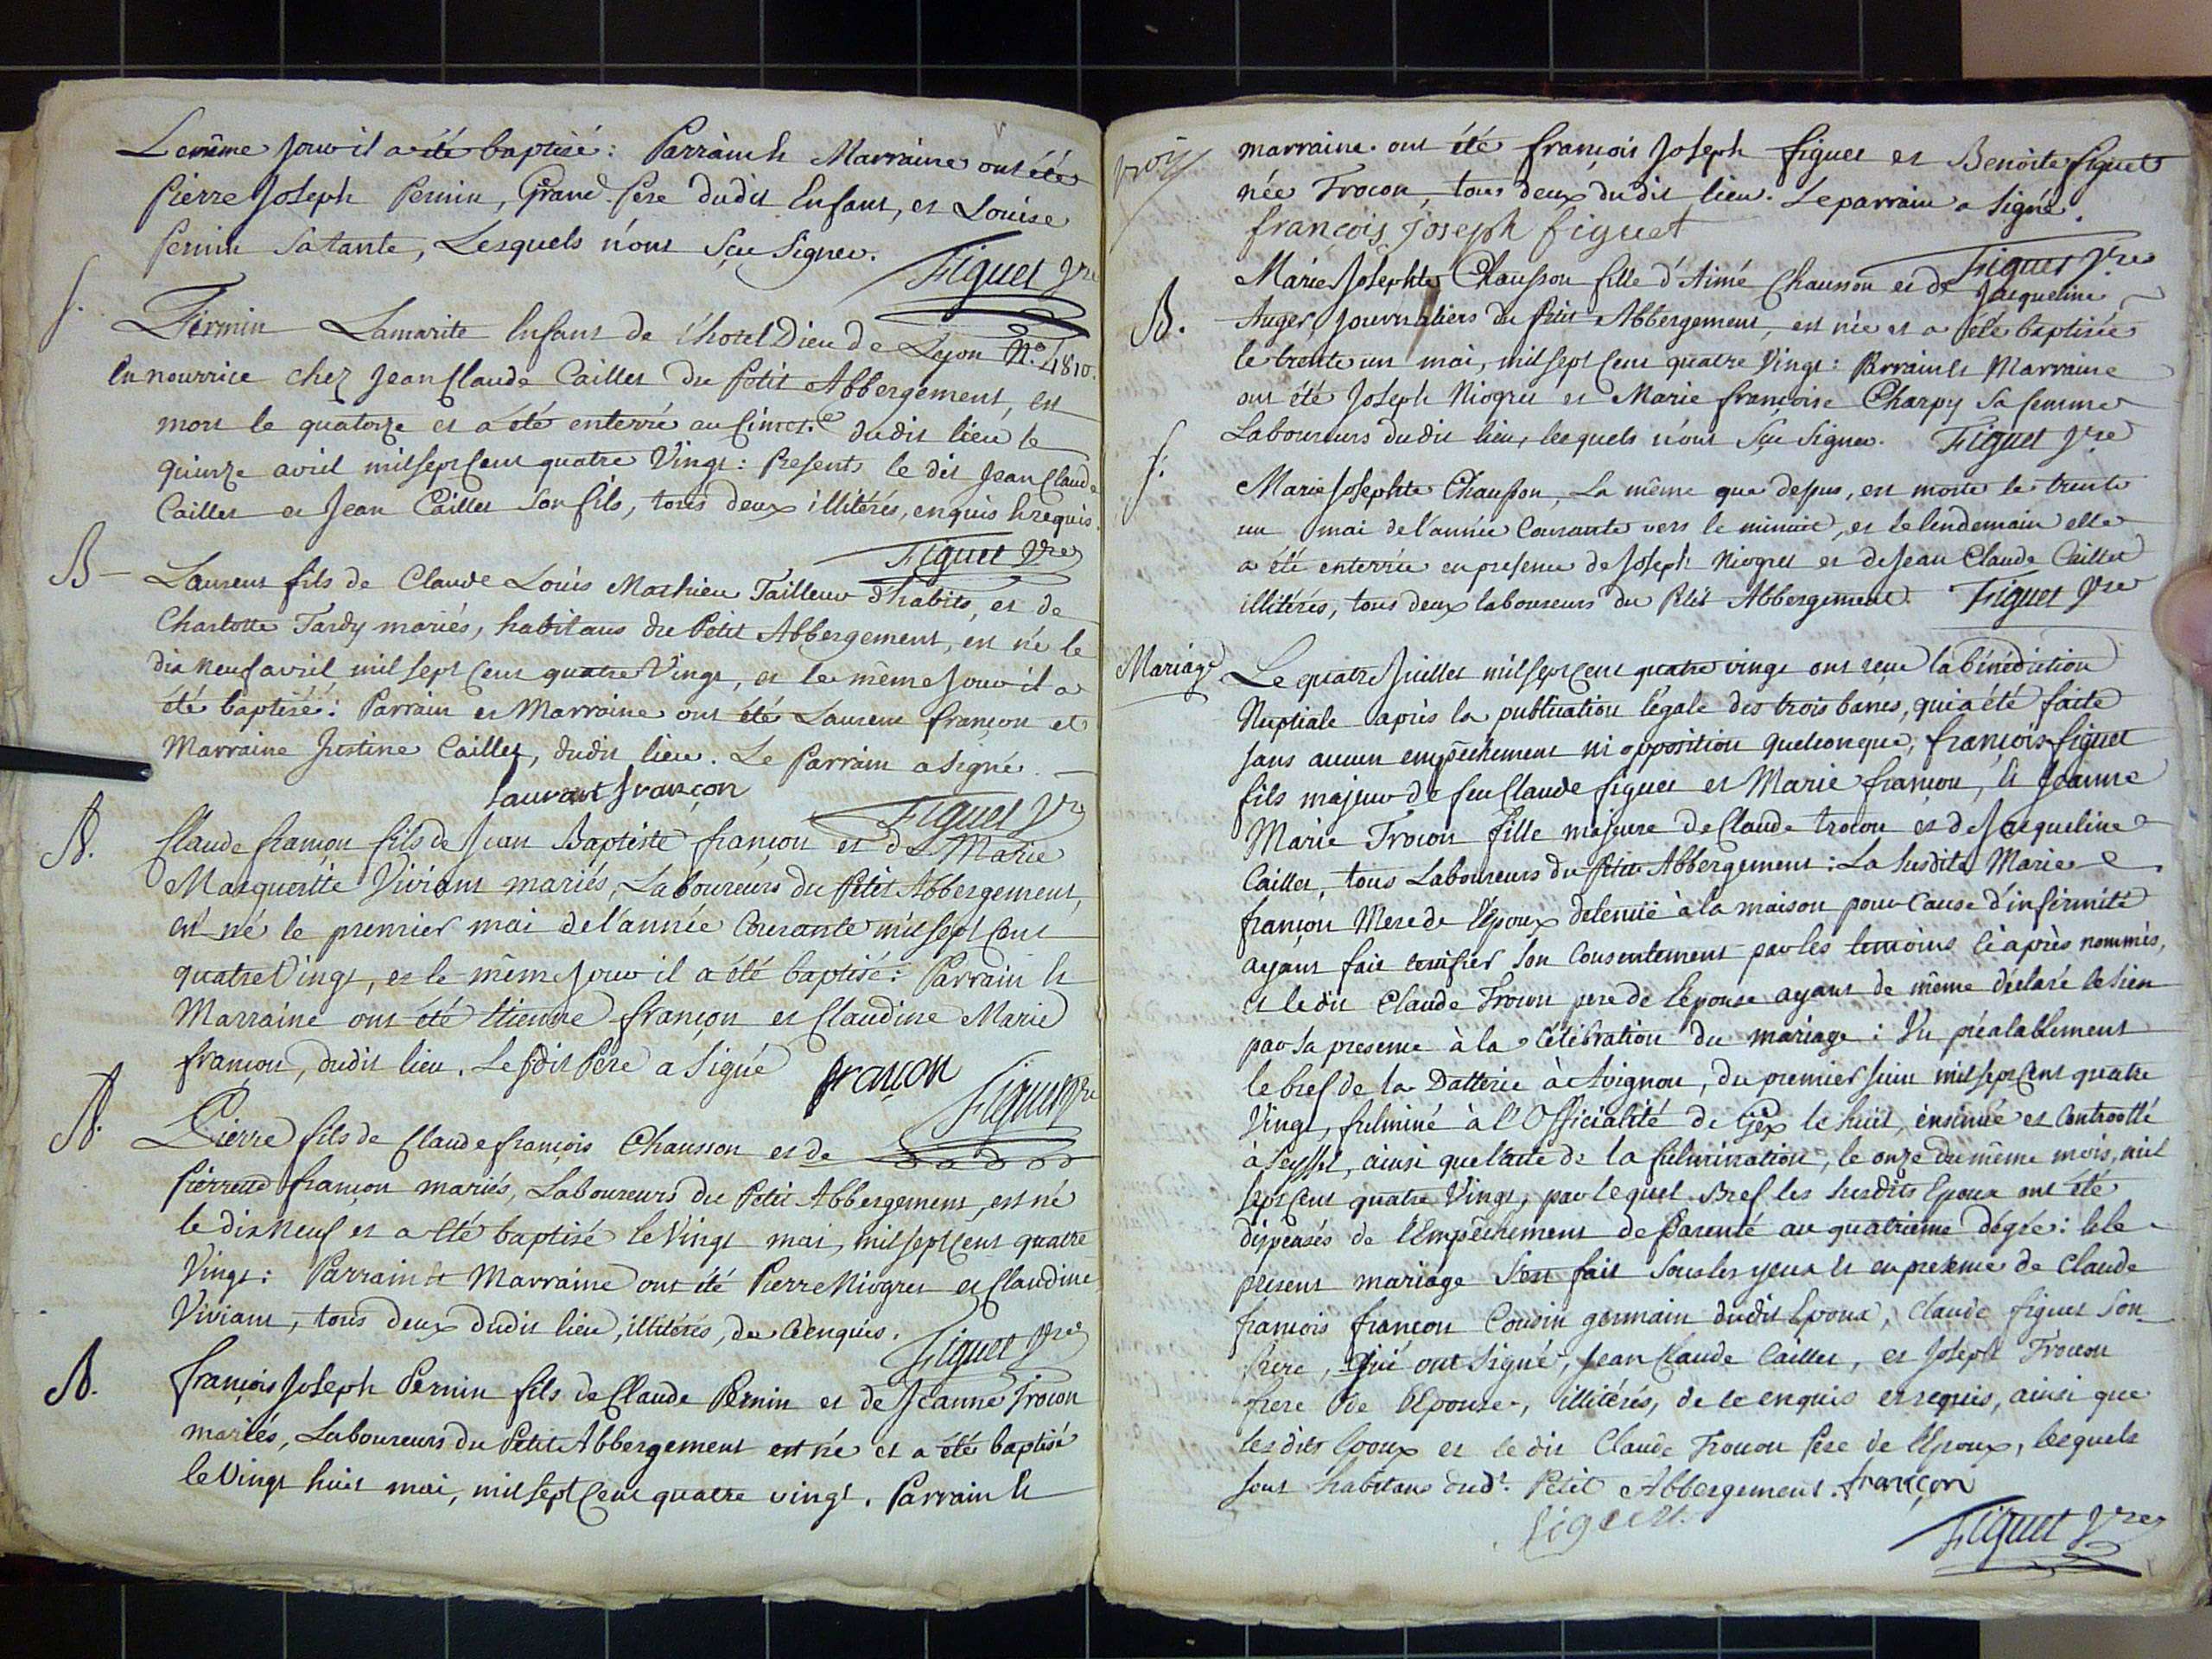 Le même jour il a été baptisé : Parrain & Marraine ont été
Pierre Joseph Pernin, Grand-Père dudit Enfant, et Louise
Pernin sa tante, Lesquels n'ont sçu signer.
Figuet Vre
f.
Firmin Lamarite Enfant de l'hotel Dieu de Lyon N.º 4810.
En nourrice chez Jean Claude Caillet du Petit Abbergement, est
mort le quatorze et a été enterré au Cimet.e dudit lieu le
quinze avril mil sept Cent quatre Vingt : Présents le dit Jean Claude
Caillet et Jean Caillet son fils, tous deux illitérés, enquis & requis.
Figuet Vre
B
Laurent fils de Claude Louis Mathieu Tailleur d'habits, et de
Charlotte Tardy mariés, habitans du Petit Abbergement, est né le
dix neuf avril mil sept Cent quatre Vingt, et le même jour il a
été baptisé : Parrain et Marraine ont été Laurent françon et
Marraine Justine Caillet, dudit lieu. Le Parrain a signé.
Laurent françon
Figuet Vre
B.
Claude françon fils de Jean Baptiste françon et de Marie
Marguerite Viviant mariés, Laboureurs du Petit Abbergement,
est né le premier mai de l'année Courante mil sept Cent
quatre Vingt, et le même jour il a été baptisé : Parrain &
Marraine ont été Etienne françon et Claudine Marie
françon, dudit lieu. Le dit Père a signé françon
Figuet Vre
B.
Pierre fils de Claude françois Chausson et de
Pierrette françon mariés, Laboureurs du Petit Abbergement, est né
le dix neuf et a été baptisé le Vingt mai, mil sept Cent quatre
Vingt : Parrain & Marraine ont été Pierre Niogret et Claudine
Viviant, tous deux dudit lieu, illitérés, de ce enquis.
Figuet Vre
B.
françois Joseph Pernin fils de Claude Pernin et de Jeanne Trocon
mariés, Laboureurs du Petit Abbergement est né et a été baptisé
le Vingt huit mai, mil sept Cent quatre vingt. Parrain &
marraine ont été françois Joseph figuet et Benoite figuet
née Trocon, tous deux dudit lieu. Le parrain a signé.
françois Joseph figuet
Figuet Vre
B.
Marie Josephte Chausson fille d'Aimé Chausson et de Jacqueline
Auger, Journaliers du Petit Abbergement, est née et a été baptisée
le trente un mai, mil sept Cent quatre Vingt : Parrain & Marraine
ont été Joseph Niogret et Marie françoise Charpy sa femme
Laboureurs dudit lieu, lesquels n'ont sçu signer. Figuet Vre
f.
Marie Josephte Chausson, La même que dessus, est morte le trente
un mai de l'année Courante vers le minuit, et le lendemain elle
a été enterrée en présence de Joseph Niogret et de Jean Claude Caillet
illitérés, tous deux laboureurs du Petit Abbergement. Figuet Vre
Mariage
Le quatre Juillet mil sept Cent quatre vingt ont reçu la bénédiction
Nuptiale après la publication légale des trois bancs, qui a été faite
sans aucun empêchement ni opposition quelconque, françois figuet
fils majeur de feu Claude figuet et Marie françon, & Jeanne
Marie Trocon fille majeure de Claude trocon et de Jacqueline
Caillet, tous Laboureurs du Petit Abbergement : La susdite Marie
françon Mere de l'époux detenuë à la maison pour Cause d'infirmité
ayant fait certifier son Consentement par les temoins ci après nommés,
et le dit Claude Trocon pere de l'épouse ayant de même déclaré le sien
par sa presence à la Célébration du mariage : Vu préalablement
le bref de la Datterie à Avignon, du premier Juin mil sept Cent quatre
Vingt, fulminé à l'Officialité de Gex le huit, insinué et Controllé
à Seyssel, ainsi que l'acte de la fulmination, le onze du même mois, mil
sept Cent quatre Vingt, par lequel Bref les susdits Epoux ont été
dispensés de l'Empêchement de Parenté au quatrieme dégré : & le
present mariage s'est fait sous les yeux & en presence de Claude
françois françon Cousin germain dudit Epoux, Claude figuet son
frere, qui ont signé, Jean Claude Caillet, et Joseph Trocon
frere de l'Epouse, illitérés, de ce enquis et requis, ainsi que
les dits Epoux et le dit Claude Trocon Pere de l'Epoux, lesquels
sont habitans dud.t Petit Abbergement. françon
figuet.
Figuet Vre